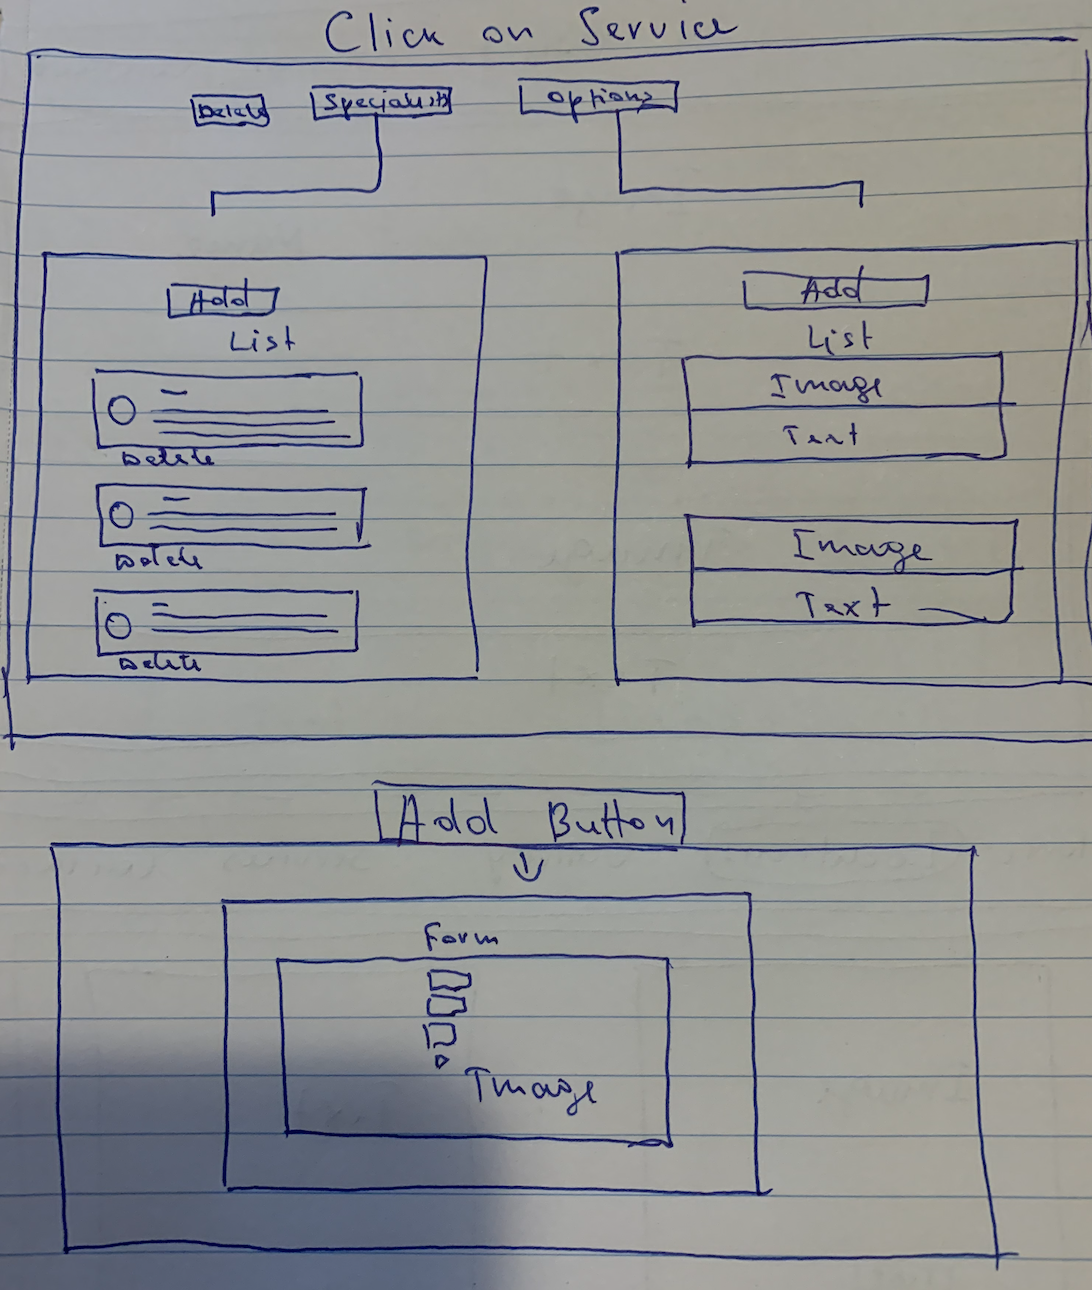 Click on Service
Delete Specialists Options
Add
List
Delete
Delete
Delete
Add
List
Image
Text
Image
Text
Add Button
Form
Image